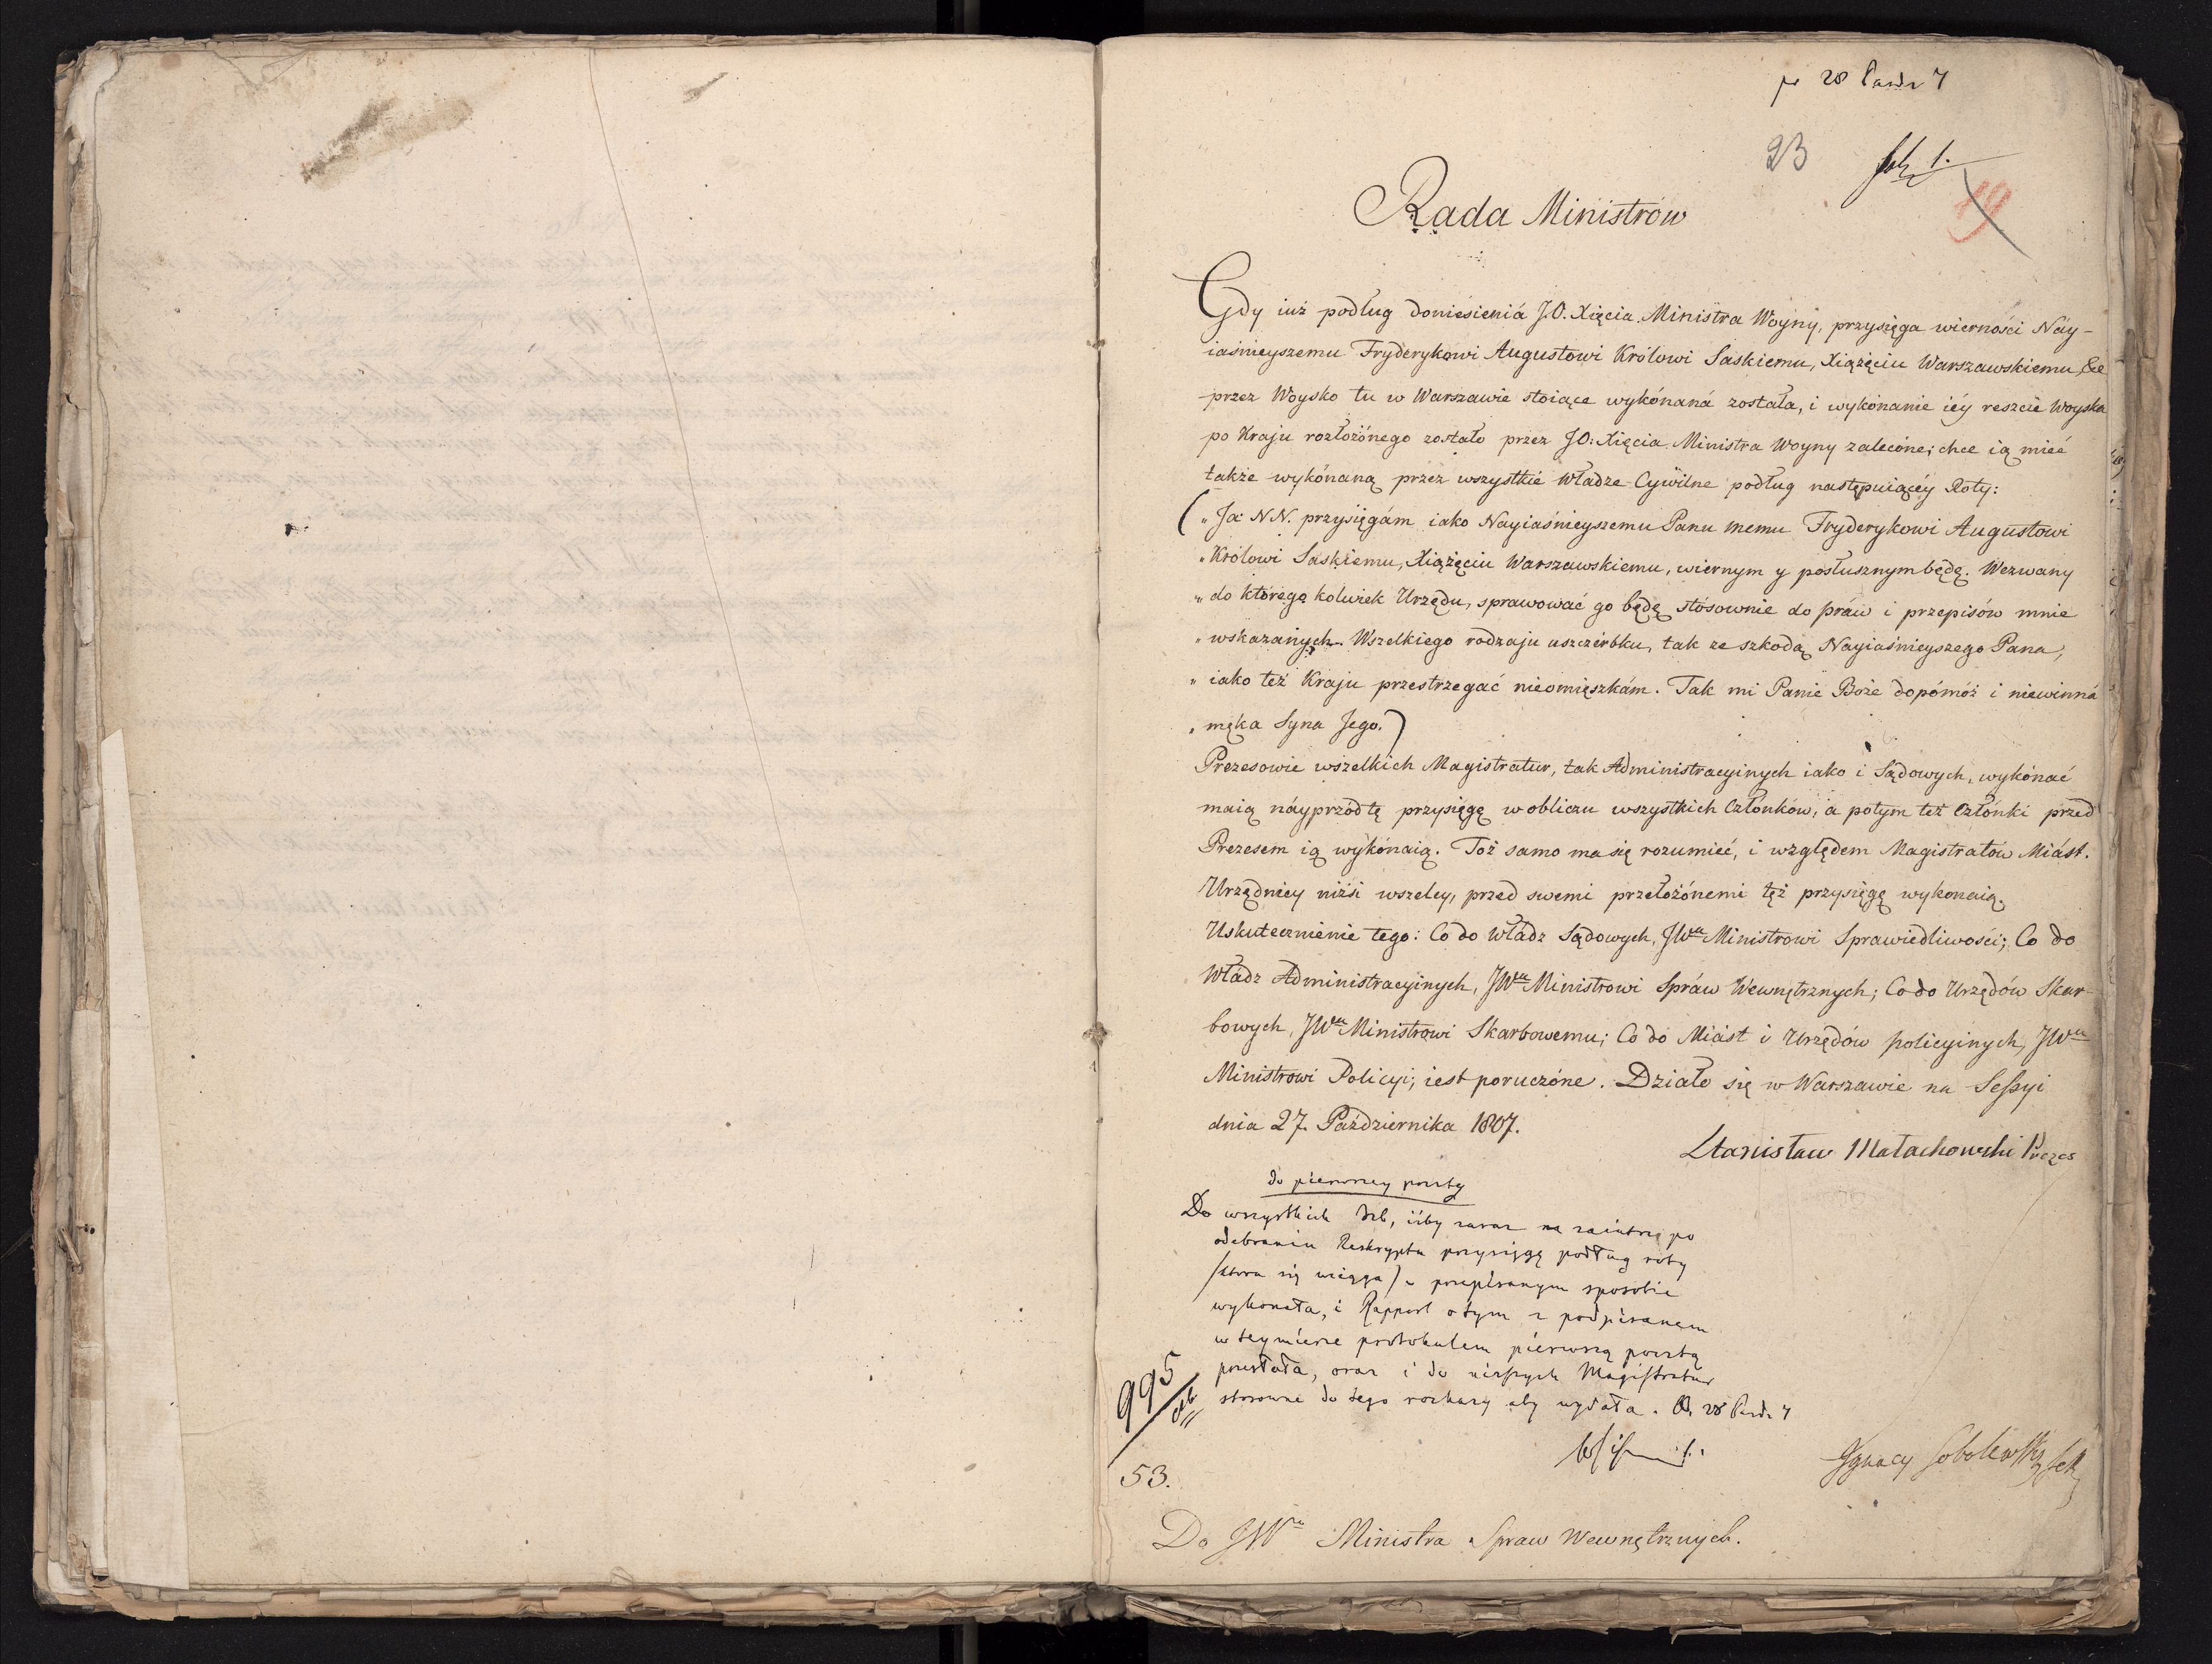 pr 28 Paźdr 7
23
19
Rada Ministrów
Gdy iuż podług doniesieniá J.O. Xięcia Ministra Woyny, przysięga wierności Náy-
iaśnieyszemu Fryderykowi Augustowi Królowi Saskiemu, Xiążęciu Warszawskiemu, &c
przez Woysko tu w Warszawie stoiące wykónaná została, i wykónanie iéy reszcie Woyska
po Kraju rozłożónego zostało przez J.O: Xięcia Ministra Woyny zalecóne; chce ią mieć
także wykónaną przez wszystkie Władze Cywilne podług następuiącéy Roty:
( „Ja NN. przysięgám iako Nayiaśnieyszemu Panu memu Fryderykowi Augustowi
„Królowi Saskiemu, Xiążęciu Warszawskiemu, wiernym y posłusznym będę. Wezwany
„do którego kolwiek Urzędu, sprawować go będę stósownie do praw i przepisów mnie
„wskazanych. Wszelkiego rodzaju uszczérbku, tak ze szkodą Nayiaśnieyszego Pana,
„iako też Kraju przestrzegać nieomięszkám. Tak mi Panie Boże dopómóż i niewinná
„męka Syna Jego. )
Prezesowie wszelkich Magistratur, tak Administracyinych iako i Sądowych, wykónać
maią náyprzód tę przysięgę w obliczu wszystkich Człónków, a potym też Człónki przed
Prezesem ią wykónaią. Toż samo ma się rozumieć, i względem Magistratów Miást.
Urzędnicy niżsi wszelcy, przed swemi przełożónemi tęż przysięgę wykonaią.
Uskutecznienie tego: Co do Władz Sądowych, JWu Ministrowi Sprawiedliwości; Co do
Władz Administracyinych, JWu Ministrowi Spráw Wewnętrznych; Co do Urzędów Skar-
bowych, JWu Ministrowi Skarbowemu; Co do Miást i Urzędów policyinych, JWu
Ministrowi Policyi; iest poruczóne. Działo się w Warszawie na Sessyi
dnia 27. Października 1807.
Stanisław Małachowski Prezes
do pierwszey poczty
Do wszystkich Izb, iżby zaraz na zaiutrz po
odebraniu Reskryptu przysięgę podług roty
/ktora się wciąga/ w przepisanym sposobie
wykonała, i Rapport o tym z podpisanem
w teymierze protokułem pierwszą pocztą
przesłała, oraz i do niższych Magistratur
stosowne do tego rozkazy aby wydała. 28 Paźdr 7
995
53.
Ignacy Sobolewski Sek
Do JWo Ministra Spraw Wewnętrznych.